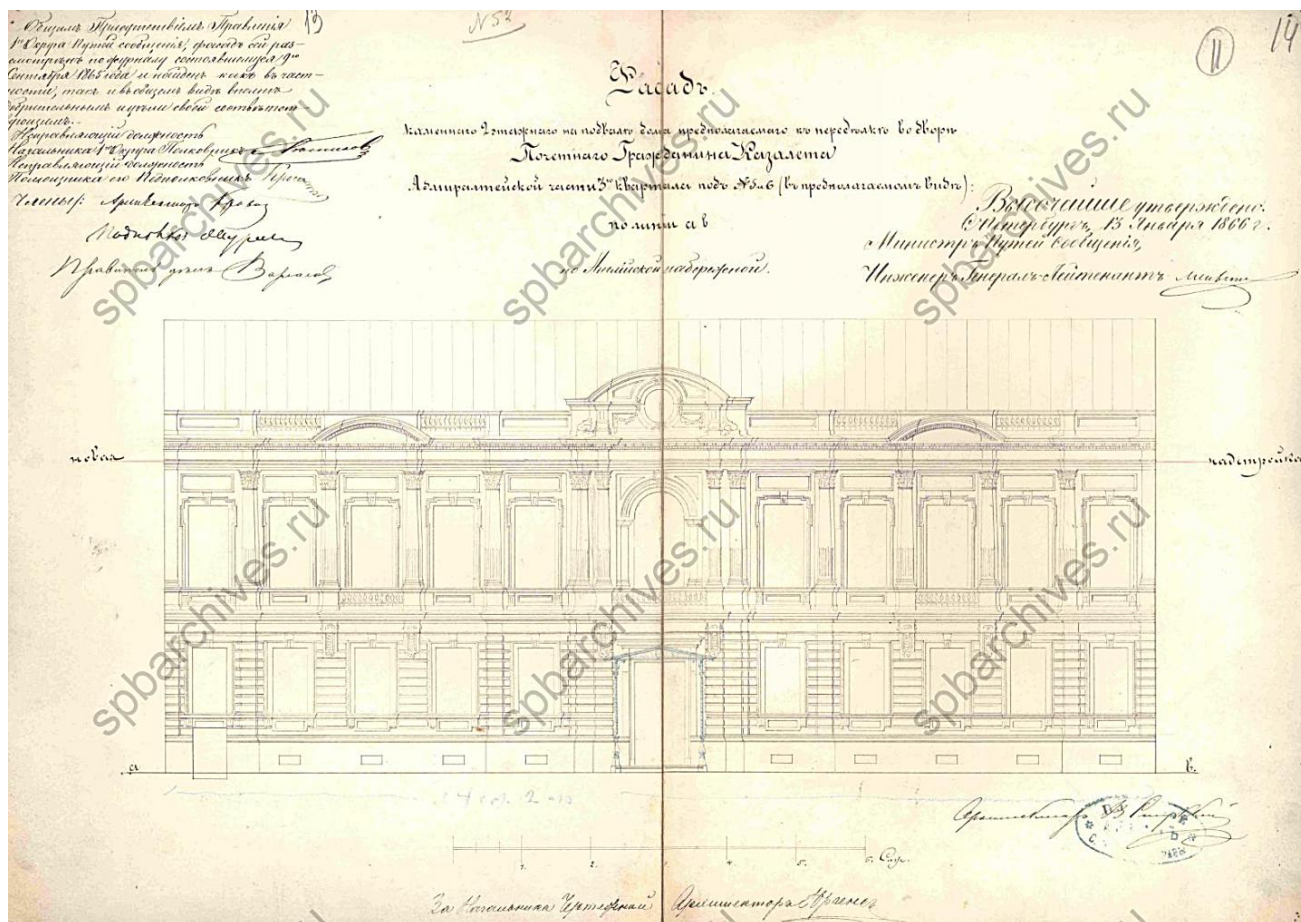 Общимъ Присутствіемъ Правленія
1го Округа Путей сообщенія, фасадъ сей раз-
смотренъ по журналу состоявшемуся 9го
Сентября 1865 года и найденъ какъ въ част-
ности, такъ и въ общемъ видѣ вполнѣ
и цѣли своей соотвѣтст
Исправляющій должность
Начальника 1го Округа Полковникъ
Исправляющій должность
Помощника его Подполковникъ
Члены: Архитекторъ
Правитель дѣлъ
13
№ 52
11
14
Фасадъ.
Каменнаго 2 этажнаго на подвалѣ дома предполагаемаго къ передѣлкѣ во дворѣ
Почетнаго Гражданина Казалета
Адмиралтейской части 3го Квартала подъ № 5 и 6 (въ предполагаемомъ видѣ):
по линіи а в
по Англійской набережной.
Высочайше утверждено.
С.Петербургъ, 13 Января 1866 г.
Министръ Путей Сообщенія,
Инженеръ Генералъ-Лейтенантъ
новая
надстройка
а
в.
1.
2.
4.
5.
6. Саж.
Архитекторъ
За Начальника Чертежной Архитекторъ
spbarchives.ru
spbarchives.ru
spbarchives.ru
spbarchives.ru
spbarchives.ru
spbarchives.ru
spbarchives.ru
spbarchives.ru
spbarchives.ru